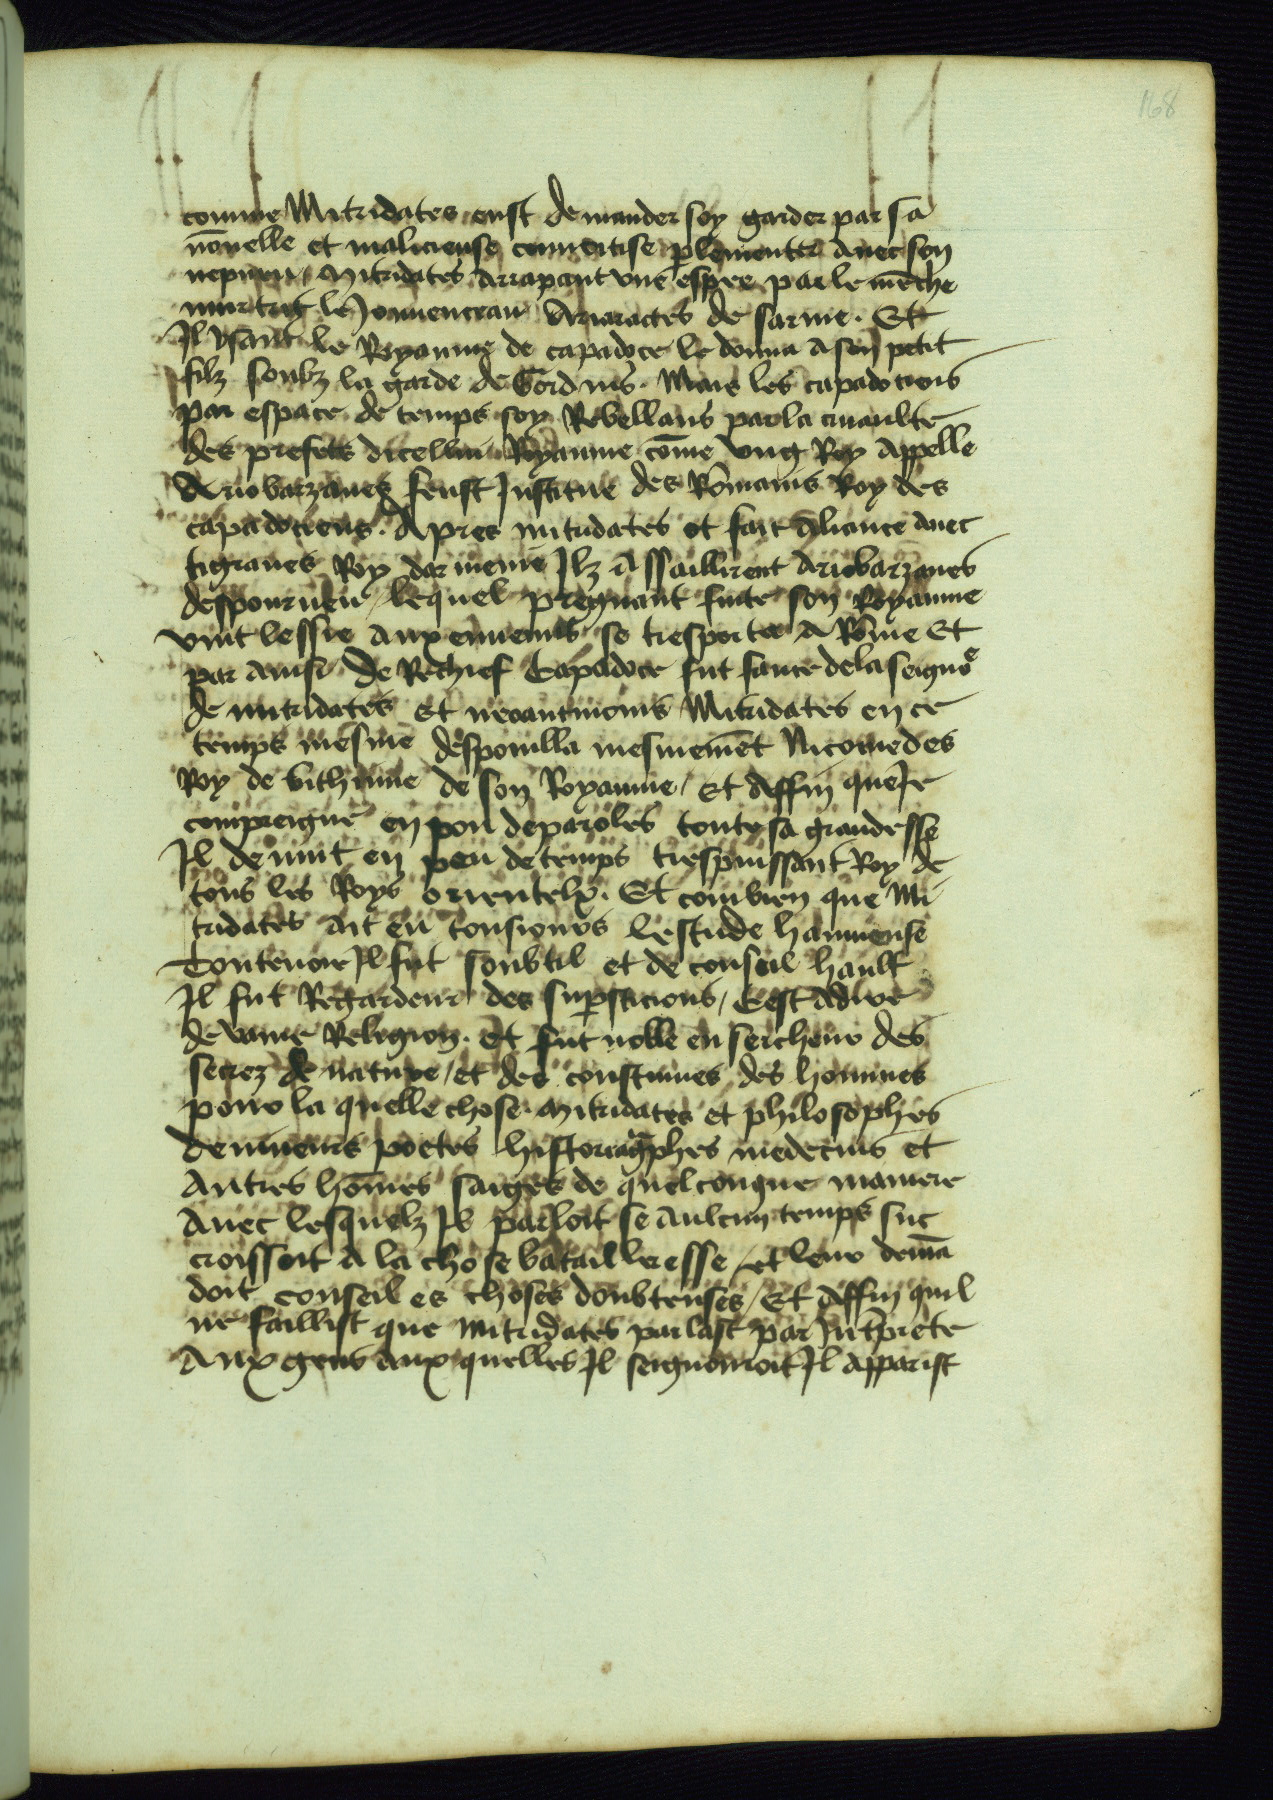 168
comme Mitridates eust demander soy garder par sa
nouvelle et malicieuse couuoitise p̱lementer auec son
nepueu Mitridates arrapant vne espee par le mēche
murtrit le Jouuenceau Ariaractes de sarme. Et
Il vsant le Royaume de capadoce le donna a son petit
filz soubz la garde de Gordius. Mais les capadociens
par espace de temps soy Rebellans par la cruaulte
des prefects dicellui Royaume cōme vng Roy Appelle
Ariobarzanes feust Institue des Rōmains Roy des
capadociens. Apres mitridates et fait aliance auec
tigranes Roy darmenie Ilz Assaillirent Ariobarzanes
despourueu lequel pregnant fuite son Royaume
vint lessie aux ennemis se tresporter A Rōme Et
par ainsi de Rechief Capadoce fut faute de la seignoᵉ
de mitridates Et neantmoins Mitridates en ce
temps mesme despouilla mesmemēt Nicomedes
Roy de bithinie de son Royaume / Et Affin que Je
compreigne en pou de paroles toute sa grandesse
Il deuint en peu de temps trespuissant Roy de
tous les Roys orientelx. Et combien que Mi
tridates ait eu tousiours lestude haineuse
Touteuoie Il fut soubtil et de conseil hault
Il fut Regardeur des sup̱sticions / Cest Adire
de vaine Religion. et fut noble ensercheur des
secrez de nature / et des coustumes des hommes
pour la quelle chose. Mitridates et philosophes
deuineurs poetes historiag̃phes medecins et
Autres hōmes saiges de quelconque maniere
Auec lesquelz Il parloit se aulcun temps suc
croissoit A la chose batailleresse / et leur demā
doit conseil es choses doubteuses / Et Affin quil
ne faillist que mitridates parlast par Int̄prete
Aux gens aux quelles Il seignourioit Il apparist